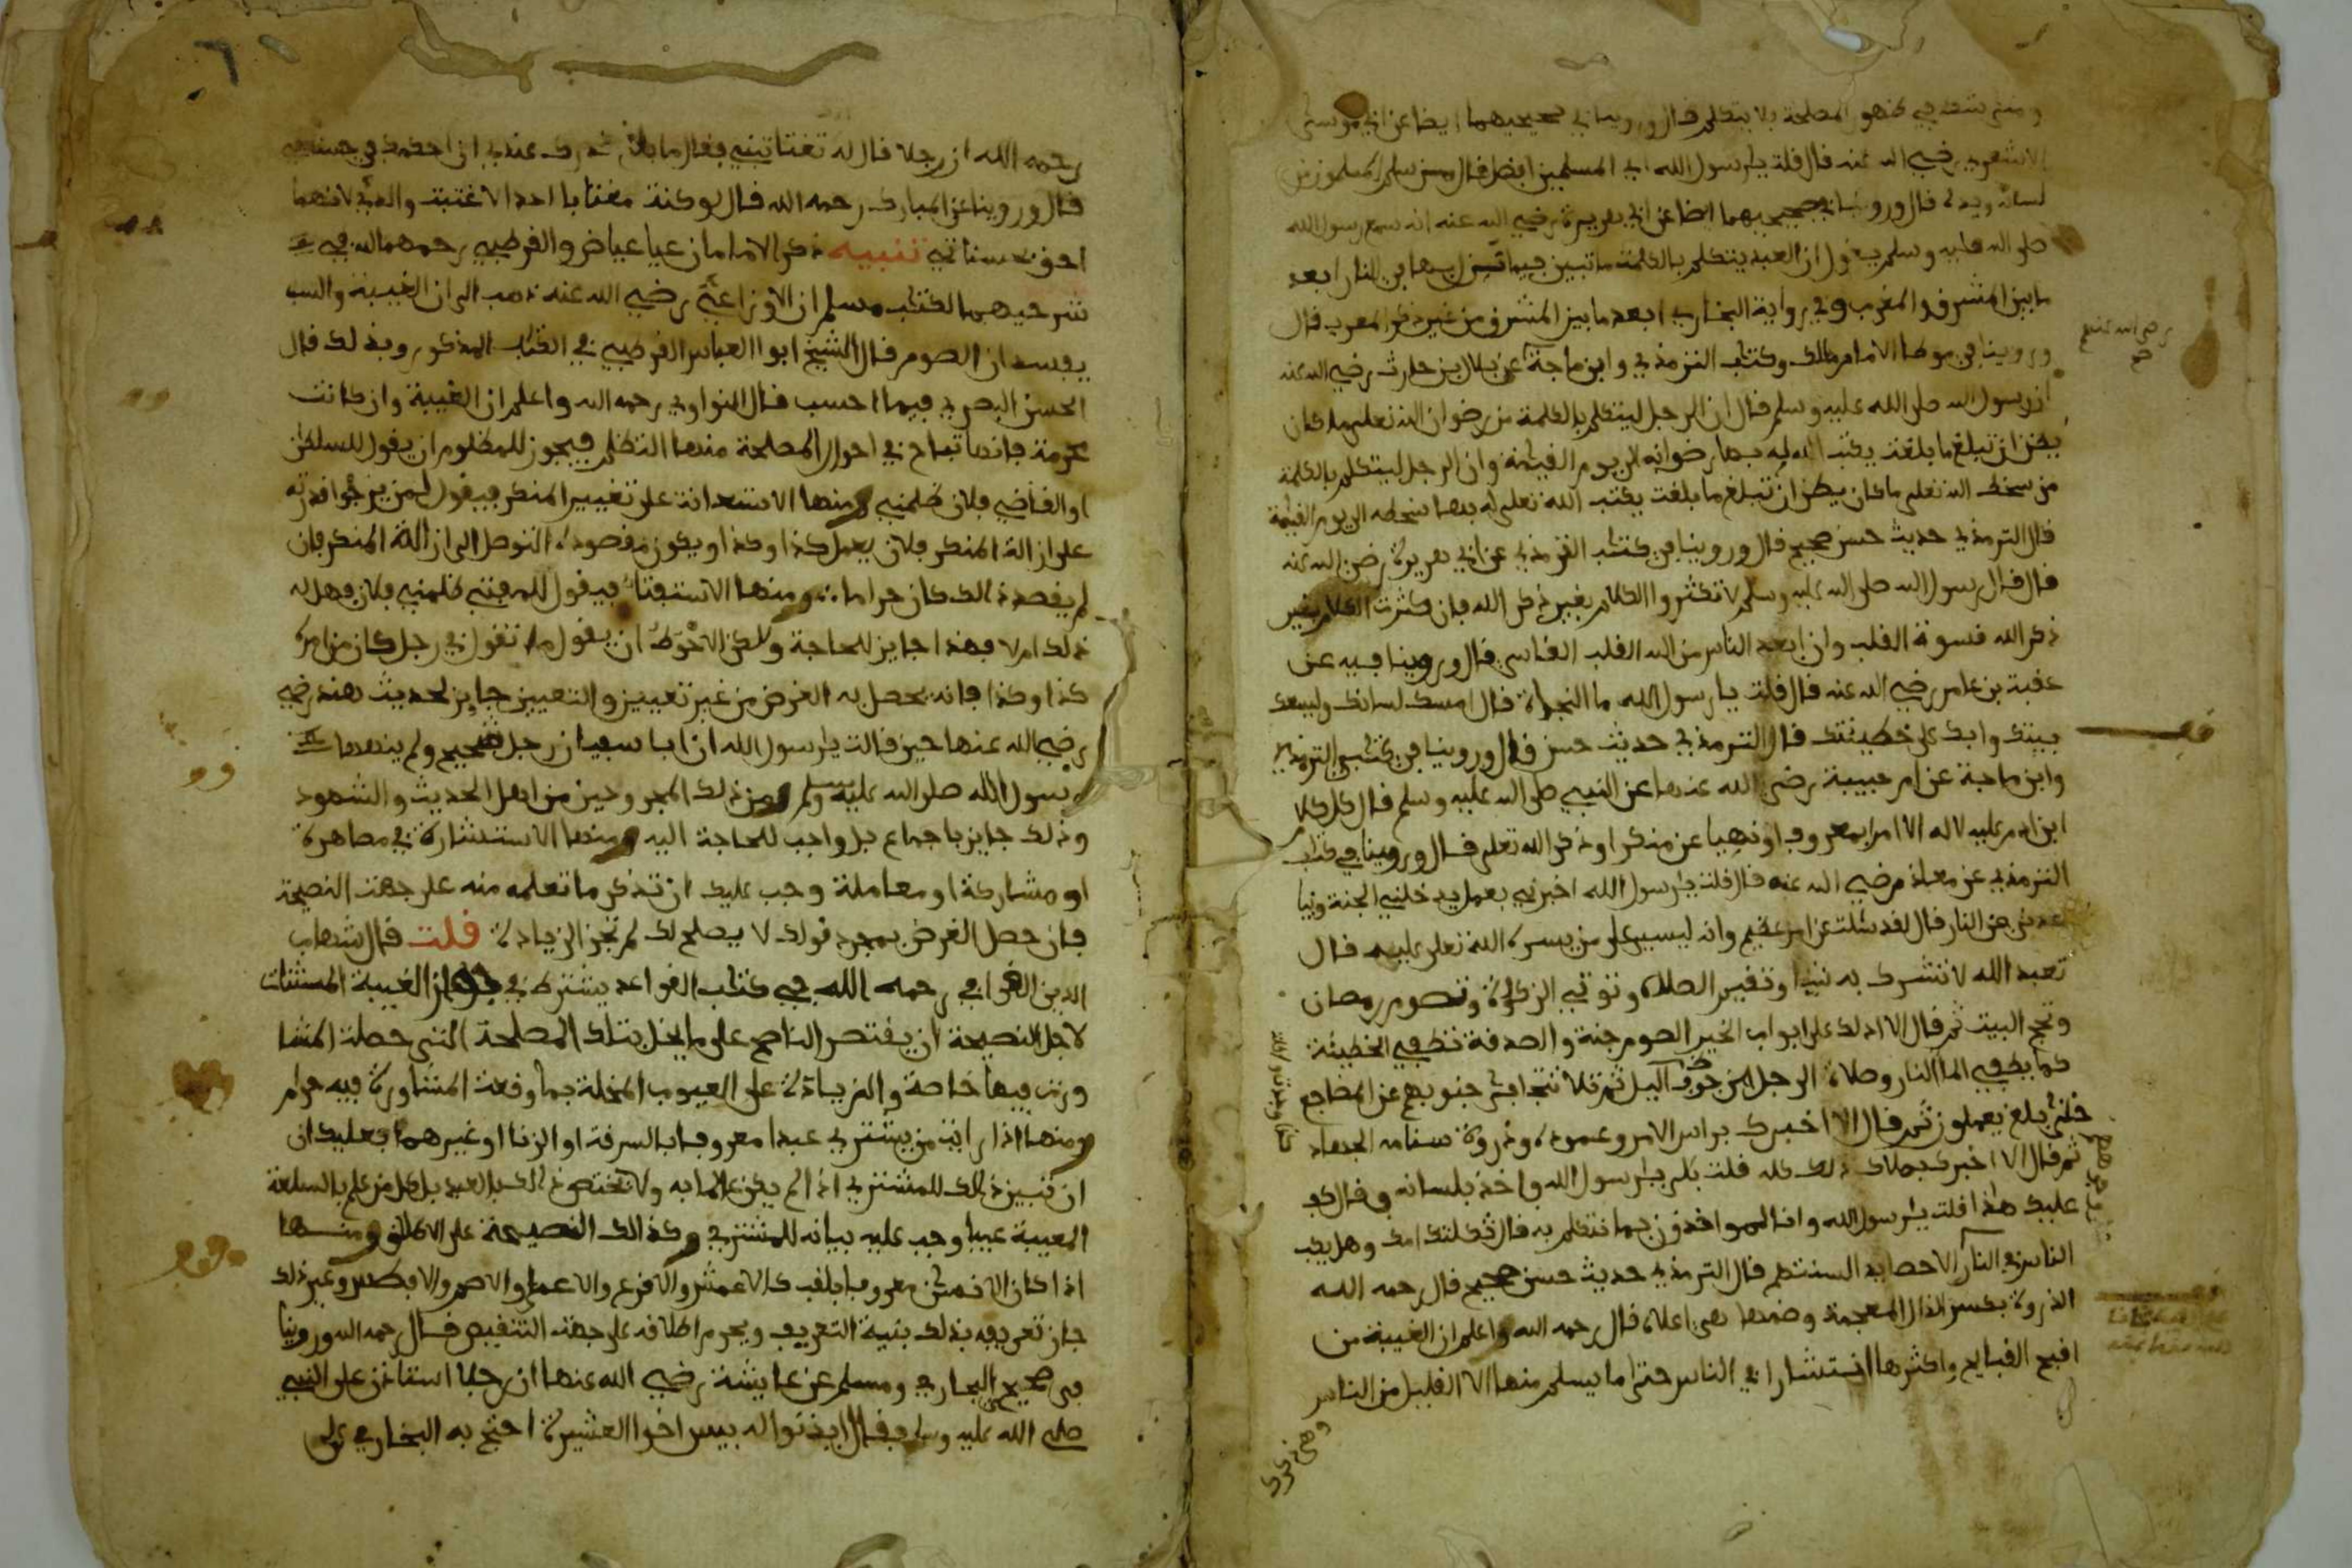 ومتى شك في ظهور المصلحة فلا يتكلم قال وروينا في صحيحيهما ايضا عن ابي موسى
الاشعري رضي الله عنه قال قلت يا رسول الله اي المسلمين افضل قال من سلم المسلمون من
لسانه ويده قال وروينا في صحيحيهما ايضا عن ابي هريرة رضي الله عنه انه سمع رسول الله
صلى الله عليه وسلم يقول ان العبد يتكلم بالكلمة ما تبين فيها يزل بها في النار ابعد
ما بين المشرق والمغرب وفي رواية البخاري ابعد ما بين المشرق من غير ذكر المغرب قال
وروينا في موطا الامام مالك وكتاب الترمذي وابن ماجة عن بلال بن حارث رضي الله عنه
ان رسول الله صلى الله عليه وسلم قال ان الرجل ليتكلم بالكلمة من رضوان الله تعلى ما كان
يظن ان تبلغ ما بلغت يكتب الله له بها رضوانه الى يوم القيمة وان الرجل ليتكلم بالكلمة
من سخط الله تعلى ما كان يظن ان تبلغ ما بلغت يكتب الله تعلى له بها سخطه الى يوم القيمة
قال الترمذي حديث حسن صحيح قال وروينا في كتاب الترمذي عن ابي هريرة رضي الله عنه
قال قال رسول الله صلى الله عليه وسلم لا تكثروا الكلام بغير ذكر الله فان كثرت الكلام بغير
ذكر الله قسوة القلب وان ابعد الناس من الله القلب القاسي قال وروينا فيه عن
عقبة بن عامر رضي الله عنه قال قلت يا رسول الله ما النجاة قال امسك لسانك وليسعك
بيتك وابك على خطيئتك قال الترمذي حديث حسن قال وروينا في كتاب الترمذي
وابن ماجة عن ام حبيبة رضي الله عنها عن النبي صلى الله عليه وسلم قال كل كلام
ابن ادم عليه لا له الا امرا بمعروف او نهيا عن منكر او ذكر الله تعلى قال وروينا في كتاب
الترمذي عن معاذ رضي الله عنه قال قلت يا رسول الله اخبرني بعمل يدخلني الجنة
عن النار قال لقد سئلت عن امر عظيم وانه ليسير على من يسره الله تعلى عليه قال
تعبد الله لا تشرك به شيا وتقيم الصلاة وتوتي الزكوة وتصوم رمضان
وتحج البيت ثم قال الا ادلك على ابواب الخير الصوم جنة والصدقة تطفي الخطيئة
كما يطفي الما النار وصلاة الرجل من جوف اليل ثم تلا تتجافى جنوبهم عن المضاجع
حتى بلغ يعملون ثم قال الا اخبرك براس الامر وعموده وذروة سنامه الجهاد
ثم قال الا اخبرك بملاك ذلك كله قلت بلى يا رسول الله واخذ بلسانه وقال كف
عليك هذا قلت يا رسول الله وانا لمواخذون بما نتكلم به قال ثكلتك امك وهل يكب
الناس في النار الا حصايد السنتهم قال الترمذي حديث حسن صحيح قال رحمه الله
الذروة بكسر الذال المعجمة وضمها هي اعلاه قال رحمه الله واعلم ان الغيبة من
اقبح القبايح واكثرها انتشارا في الناس حتى ما يسلم منها الا القليل من الناس
رضي الله عنهم
رحمه الله ان رجلا قال له تغتابني فقال ما بلغ قدرك عندي ان احكمك في حسناتي
قال وروينا عن المبارك رحمه الله قال لو كنت مغتابا احدا لاغتبت والدي لانهما
احق بحسناتي تنبيه ذكر الامامان عياض والقرطبي رحمهما الله في
شرحيهما لكتاب مسلم ان الاوزاعي رضي الله عنه ذهب الى ان الغيبة والسب
يفسدان الصوم قال الشيخ ابوا العباس القرطبي في الكتاب المذكور وبذلك قال
الحسن البصري فيما احسب قال النواوي رحمه الله واعلم ان الغيبة وان كانت
محرمة فانها تباح في احوال المصلحة منها التظلم فيجوز للمظلوم ان يقول للسلطان
او القاضي فلان ظلمني ومنها الاستعانة على تغيير المنكر فيقول لمن يرجوا قدرته
على ازالة المنكر فلان يعمل كذا وكذا ويكون مقصوده التوصل الى ازالة المنكر فان
لم يقصد ذالك كان حراما ومنها الاستفتاء فيقول للمفتي ظلمني فلان فهل له
ذلك ام لا فهذا جايز للحاجة ولكن الاحوط ان يقول ما تقول في رجل كان من امره
كذا وكذا فانه يحصل به الغرض من غير تعيين والتعيين جايز لحديث هند رضي
رضي الله عنها حين قالت يا رسول الله ان ابا سفيان رجل شحيح ولم ينهها
رسول الله صلى الله عليه وسلم ومن ذلك المجروحين من اهل الحديث والشهود
وذلك جايز باجماع بل واجب للحاجة اليه ومنها الاستشارة في مصاهرة
او مشاركة او معاملة وجب عليك ان تذكر ما تعلمه منه على جهة النصيحة
فان حصل الغرض بمجرد قولك لا يصلح لك لم تجز الزيادة قلت قال شهاب
الدين القرافي رحمه الله في كتاب القواعد يشترط في جواز الغيبة المستثنات
لاجل النصيحة ان يقتصر الناصح على ما يخل بتلك المصلحة التي حصلت المشا
ورة فيها خاصة والزيادة على العيوب المخلة بما وقعت المشاورة فيه حرام
ومنها اذا رايت من يشتري عبدا معروفا بالسرقة او الزنا او غيرهما فعليك ان
ان تبين ذلك للمشتري اذا لم يكن عالما به ولا تختص ذلك بالعبد بل كل من علم بالسلعة
المعيبة عيبا وجب عليه بيانه للمشتري وكذالك النصيحة على الاطلاق ومنها
اذا كان الانسان معروفا بلقب كالاعمش والاقرع والاعمى والاصم والافطس وغير ذلك
جاز تعريفه بذلك بنية التعريف ويحرم اطلاقه على جهة التنقيص قال رحمه الله وروينا
في صحيحي البخاري ومسلم عن عايشة رضي الله عنها ان رجلا استاذن على النبي
صلى الله عليه وسلم فقال ايذنوا له بيس اخوا العشيرة احتج به البخاري على